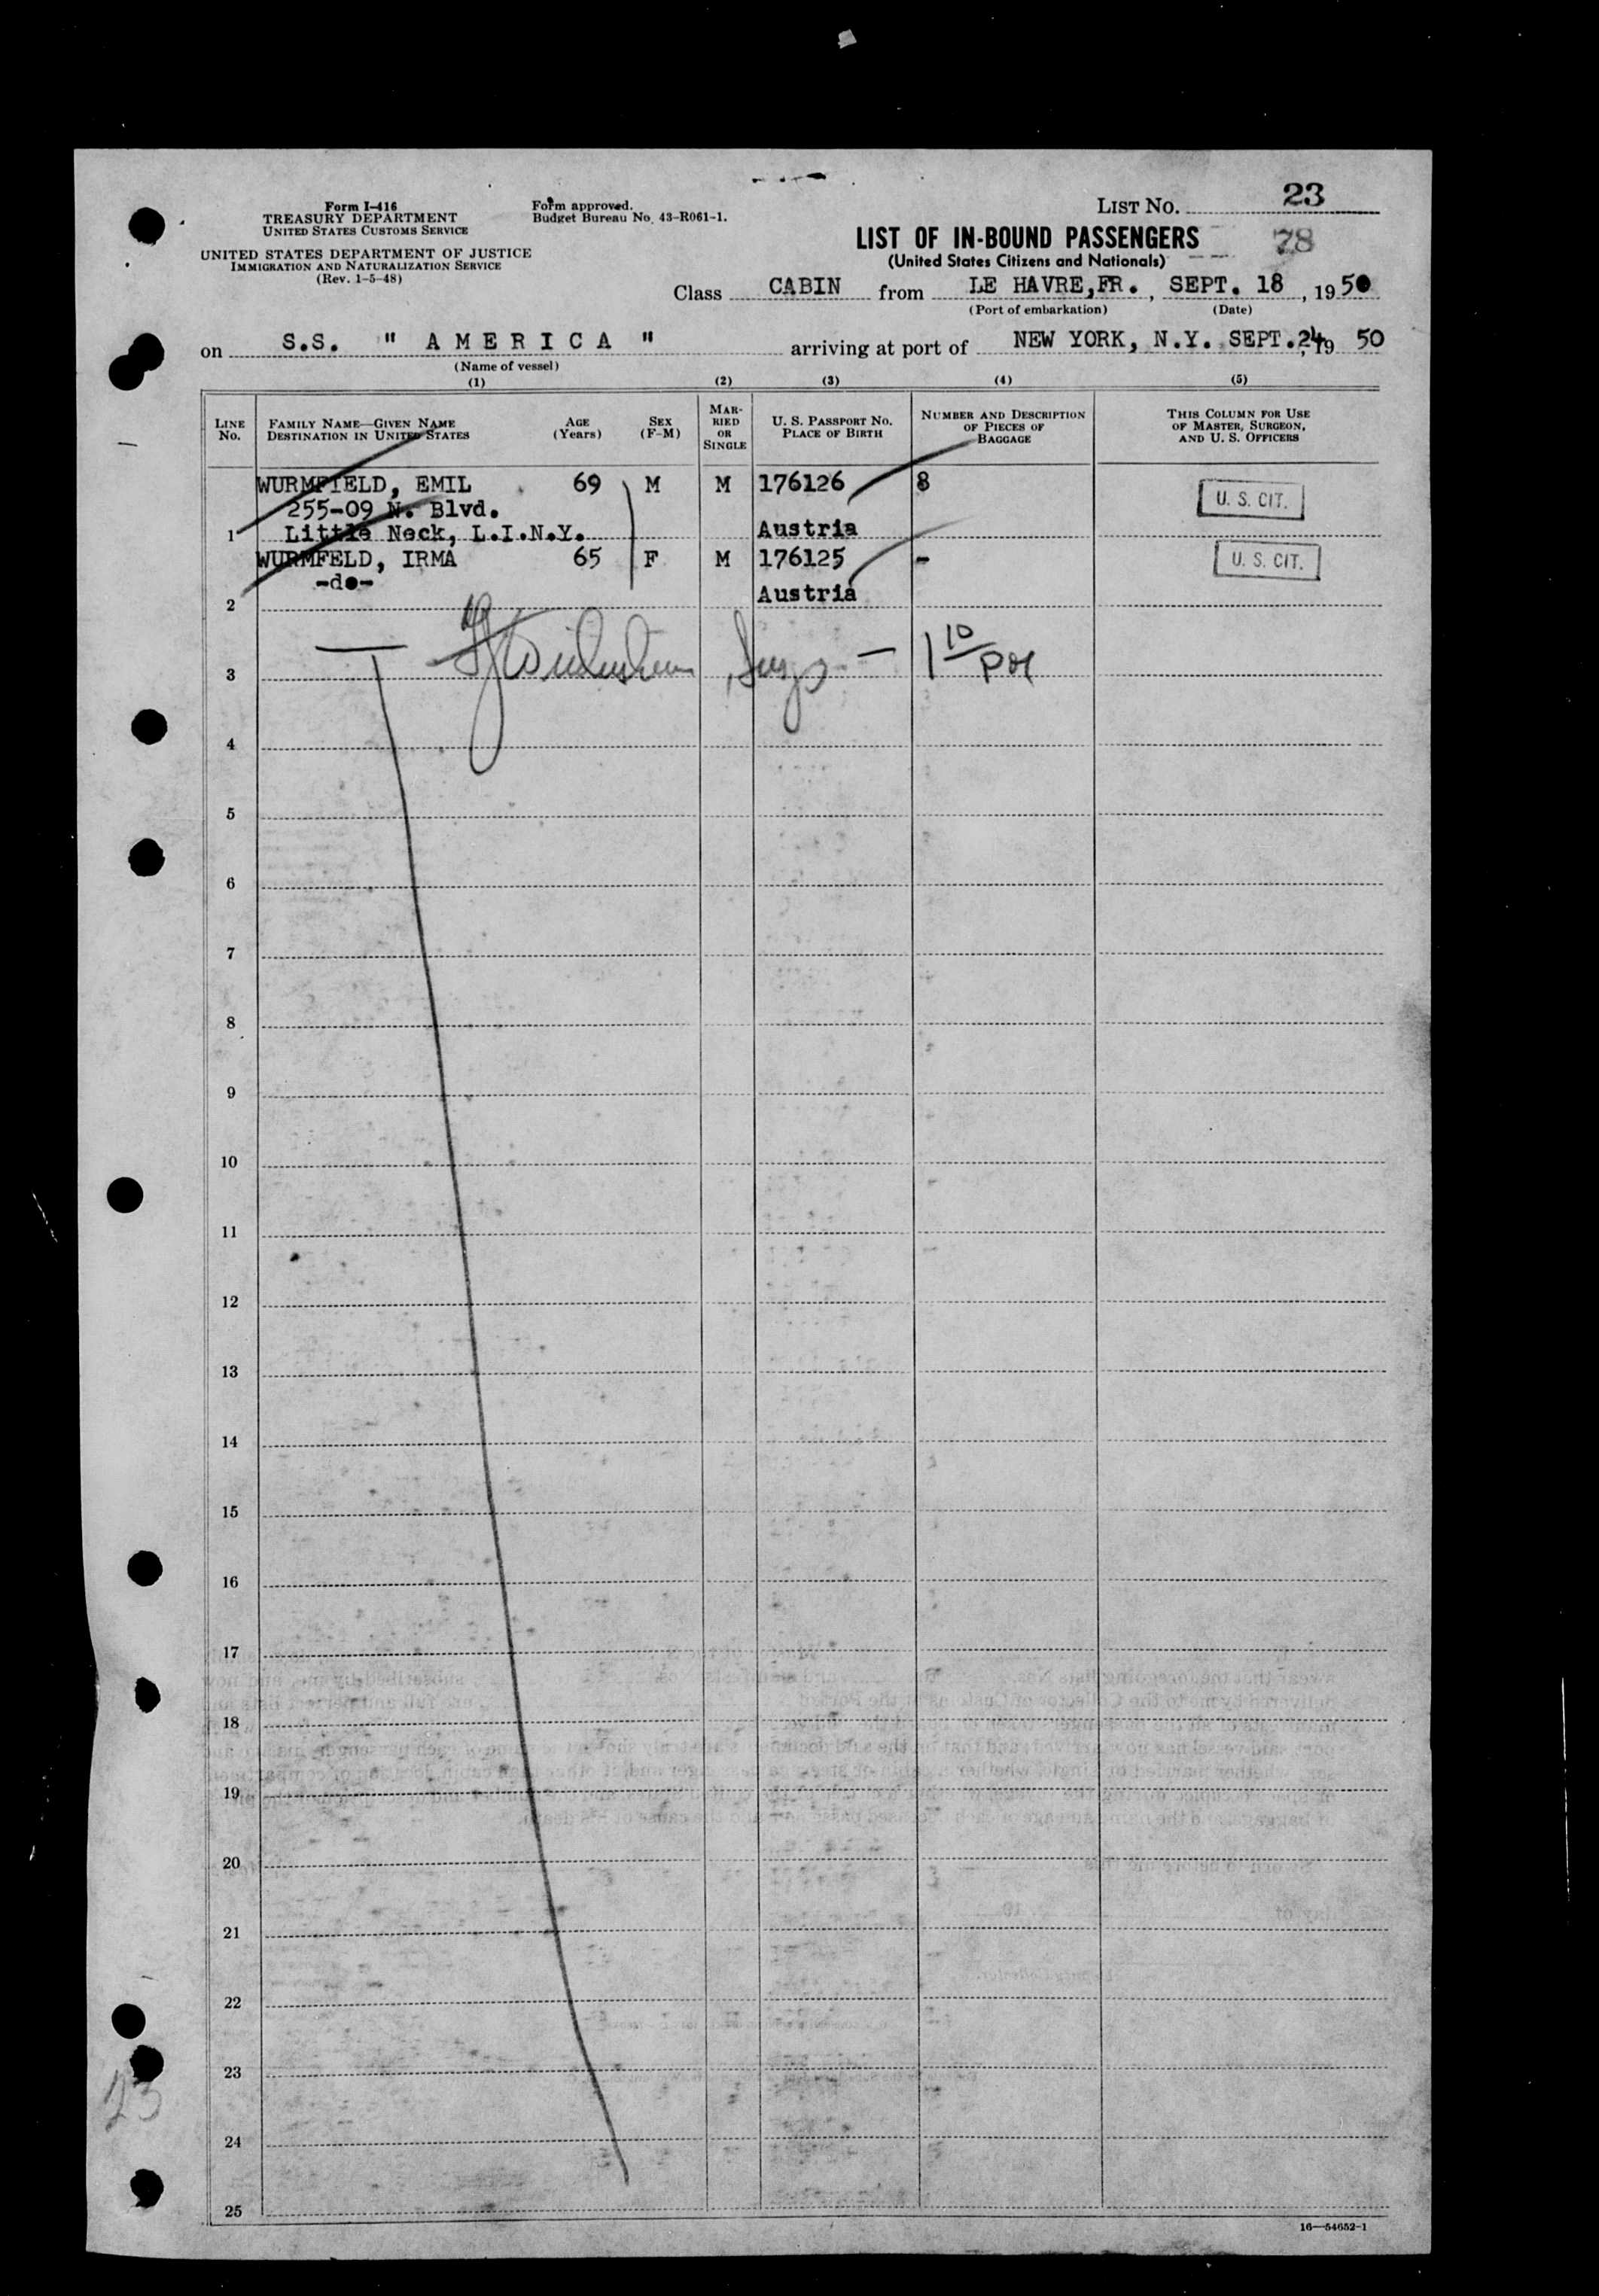 Form I-416
TREASURY DEPARTMENT
UNITED STATES CUSTOMS SERVICE
UNITED STATES DEPARTMENT OF JUSTICE
IMMIGRATION AND NATURALIZATION SERVICE
(Rev. 1-5-48)
Form approved.
Budget Bureau No. 43-R061-1.
LIST NO. 23
LIST OF IN-BOUND PASSENGERS
78
(United States Citizens and Nationals)
Class CABIN from LE HAVRE,FR., SEPT. 18, 1950
(Port of embarkation) (Date)
on S.S. " A M E R I C A " arriving at port of NEW YORK, N.Y. SEPT.24, 19 50
(Name of vessel)
(1) (2) (3) (4) (5)
LINE No. FAMILY NAME—GIVEN NAME DESTINATION IN UNITED STATES AGE (Years) SEX (F-M) MARRIED OR SINGLE U. S. PASSPORT NO. PLACE OF BIRTH NUMBER AND DESCRIPTION OF PIECES OF BAGGAGE THIS COLUMN FOR USE OF MASTER, SURGEON, AND U. S. OFFICERS
WURMFIELD, EMIL 69 M M 176126 8 U. S. CIT.
255-09 N. Blvd.
1 Little Neck, L.I.N.Y. Austria
WURMFELD, IRMA 65 F M 176125 - U. S. CIT.
-do-
2 Austria
3
4
5
6
7
8
9
10
11
12
13
14
15
16
17
18
19
20
21
22
23
23
24
25
16—54652-1